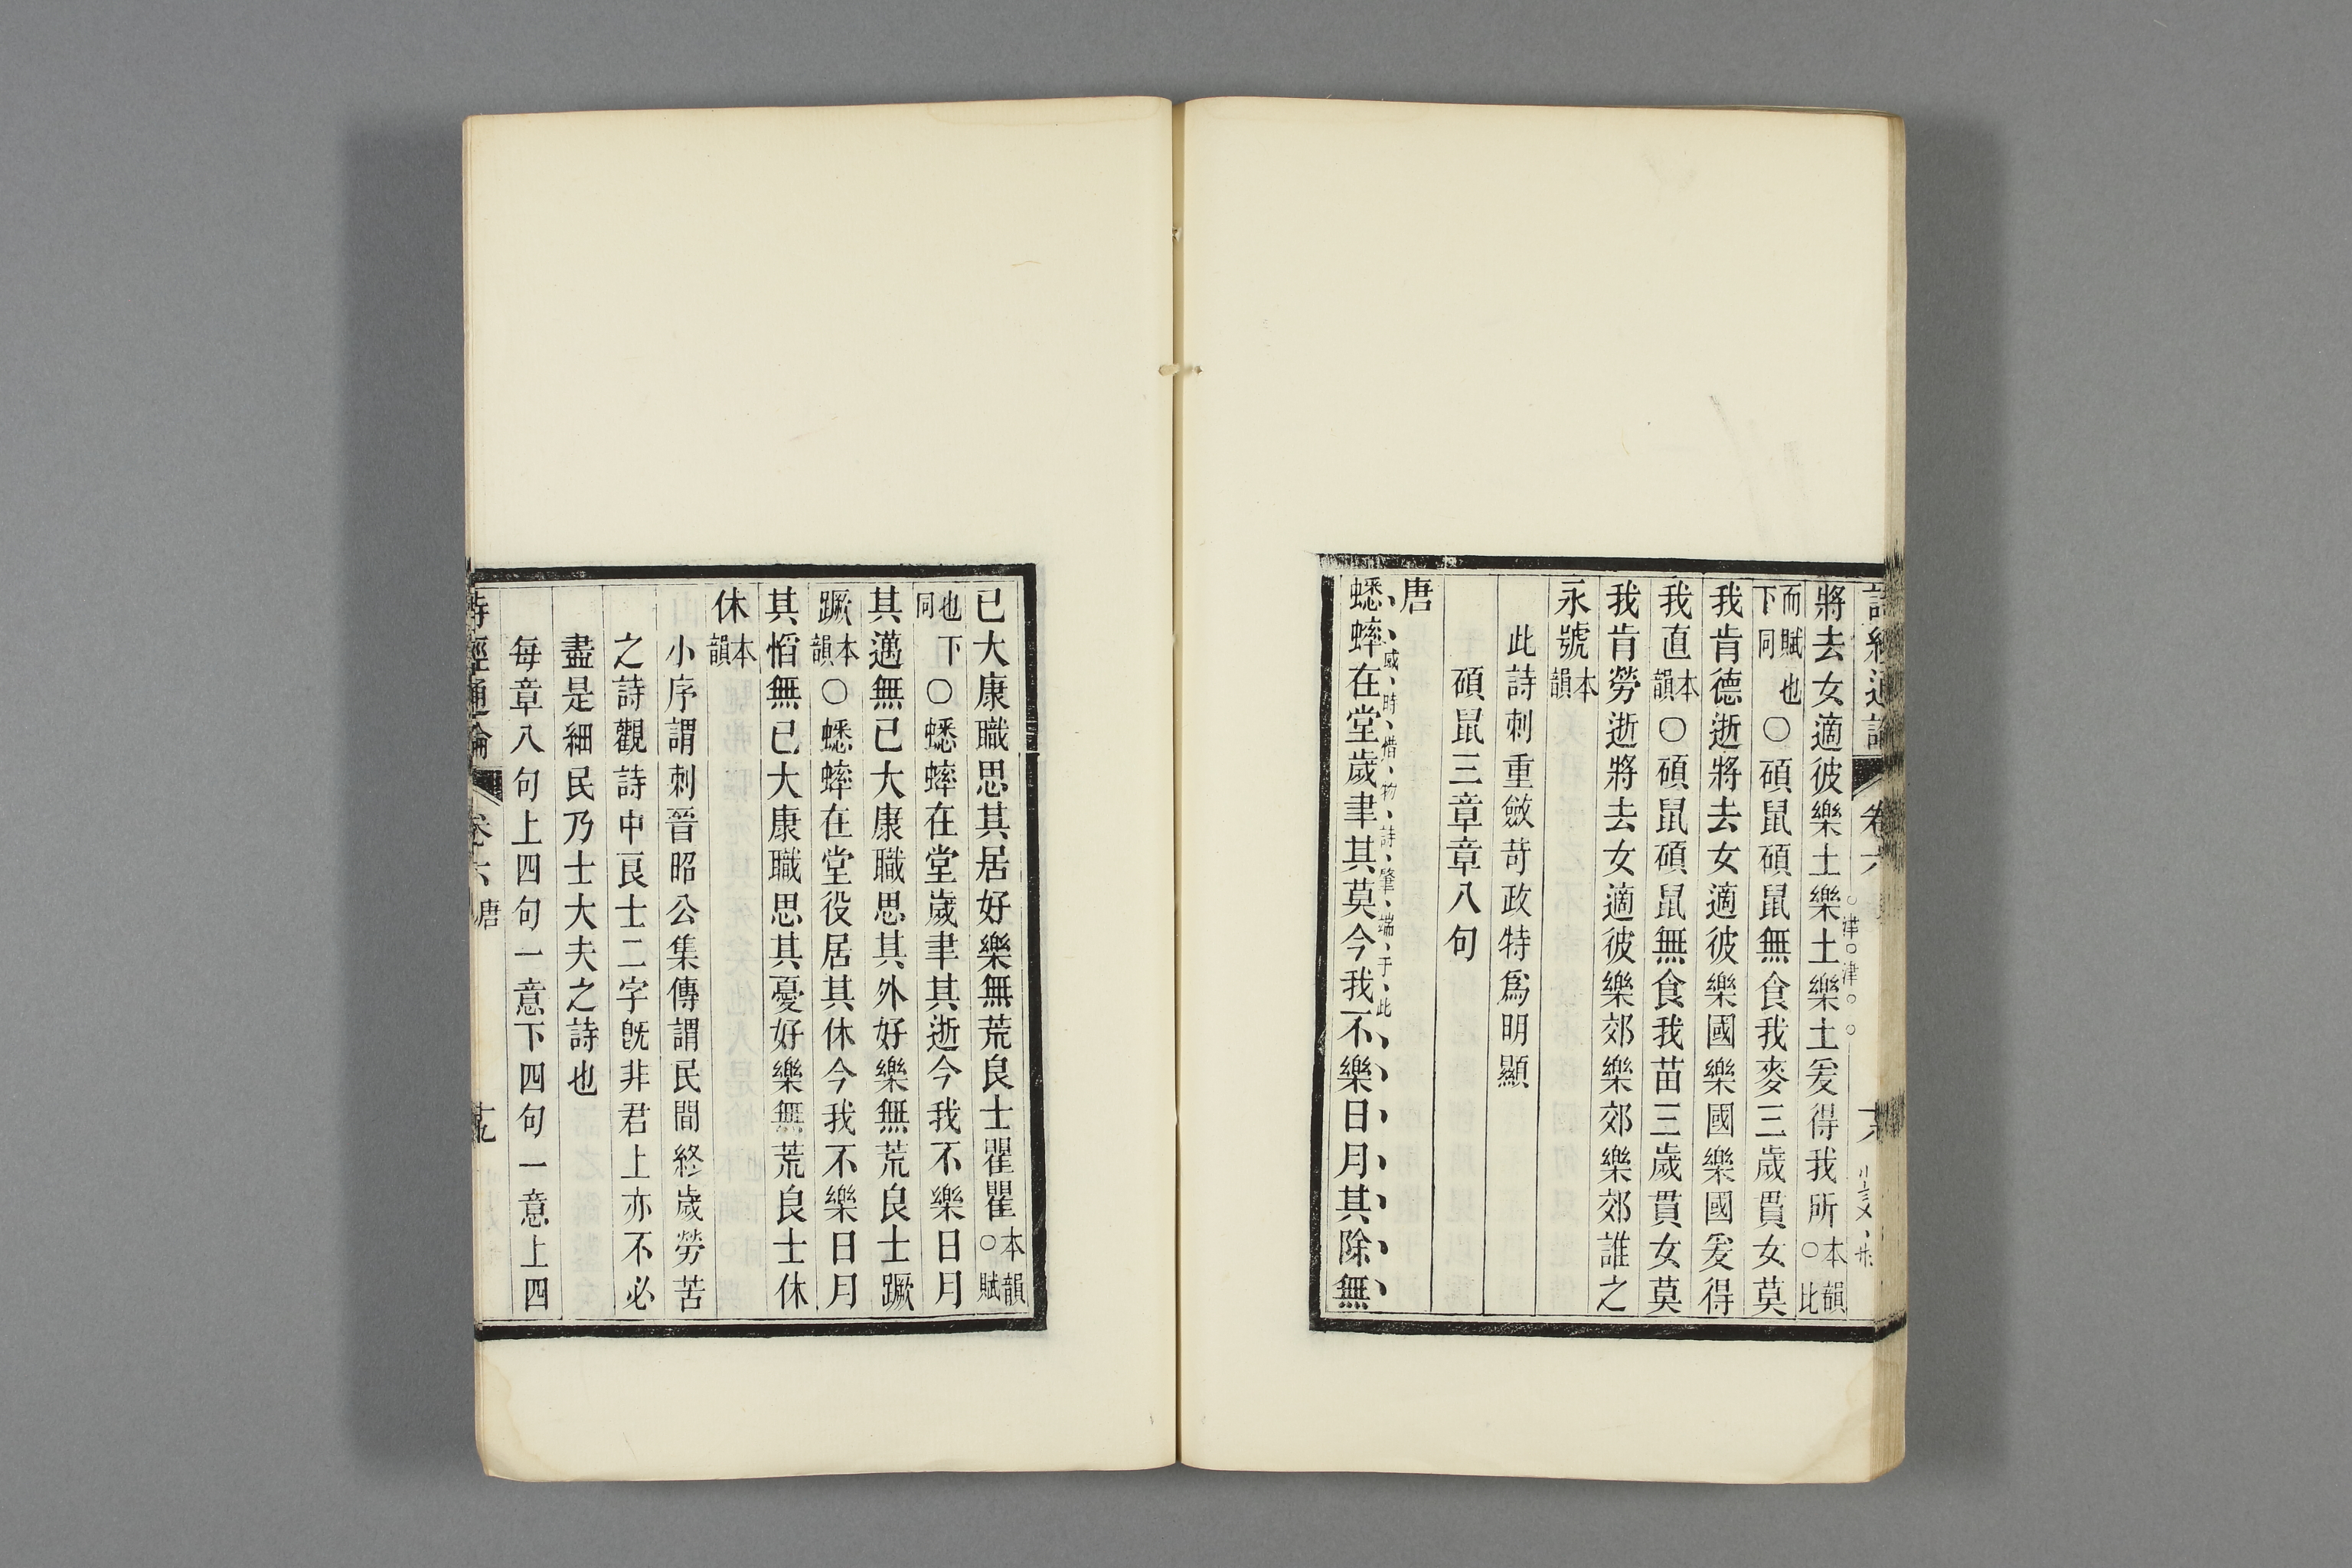 將去女適彼樂土樂土樂土爰得我所本韻○比
津津
而賦也下同○碩鼠碩鼠無食我麥三歲貫女莫
我肯德逝將去女適彼樂國樂國樂國爰得
我直本韻○碩鼠碩鼠無食我苗三歲貫女莫
我肯勞逝將去女適彼樂郊樂郊樂郊誰之
永號本韻
此詩刺重斂苛政特爲明顯
碩鼠三章章八句
唐
感時惜物詩肇端于此
蟋蟀在堂歲聿其莫今我不樂日月其除無
已大康職思其居好樂無荒良士瞿瞿本韻○賦
也下同○蟋蟀在堂歲聿其逝今我不樂日月
其邁無已大康職思其外好樂無荒良士蹶
蹶本韻○蟋蟀在堂役居其休今我不樂日月
其慆無已大康職思其憂好樂無荒良士休
休本韻
小序謂刺晉昭公集傳謂民間終歲勞苦
之詩觀詩中良士二字旣非君上亦不必
盡是細民乃士大夫之詩也
每章八句上四句一意下四句一意上四
詩經通論 卷六 唐 十九